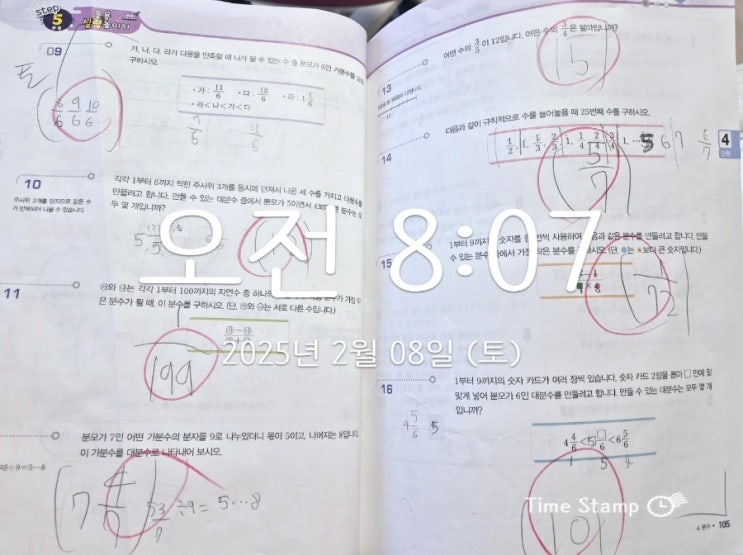 step 5
09
가, 나, 다, 라가 다음을 만족할 때 나가 될 수 있는 수 중 분모가 6인 가분수를 모두
구하시오.
· 가: 11/6 · 다: 18/6 · 라: 1 1/6
· 라<나<가<다
8/6 9/6 10/6
7/6
10
각각 1부터 6까지 적힌 주사위 3개를 동시에 던져서 나온 세 수를 가지고 대분수를
만들려고 합니다. 만들 수 있는 대분수 중에서 분모가 5이면서
두 몇 개입니까?
주사위 3개를 던지므로 같은 수
가 반복되어 나올 수 있습니다.
11
㉮와 ㉯는 각각 1부터 100까지의 자연수 중 하나
은 분수가 될 때, 이 분수를 구하시오. (단, ㉮와 ㉯는 서로 다른 수입니다.)
1
199
분모가 7인 어떤 가분수의 분자를 9로 나누었더니 몫이 5이고, 나머지는 8입니다.
이 가분수를 대분수로 나타내어 보시오.
÷9=5…8
7 4/7
53/7 ÷9= 5…8
13
어떤 수의 3/5이 12입니다. 어떤 수의 3/4은 얼마입니까?
15
14
다음과 같이 규칙적으로 수를 늘어놓을 때 25번째 수를 구하시오.
1/2, 1, 1/3, 2/3, 1, 1/4, 2/4, 3/4, 1, …
5 6 7
6/7
5/7
4
단원
15
1부터 9까지의 숫자를 한 번씩 사용하여 다음과 같은 분수를 만들려고 합니다. 만들
수 있는 분수 중에서 가장 작은 분수를 구하시오. (단, ●는 ★보다 큰 숫자입니다.)
1/72
16
1부터 9까지의 숫자 카드가 여러 장씩 있습니다. 숫자 카드 2장을 뽑아 □ 안에 알
맞게 넣어 분모가 6인 대분수를 만들려고 합니다. 만들 수 있는 대분수는 모두 몇 개
입니까?
4 5/6 5
4 4/6 < 5 □/6 < 6 5/6
1 5 4
10
4. 분수 • 105
오전 8:07
2025년 2월 08일 (토)
Time Stamp